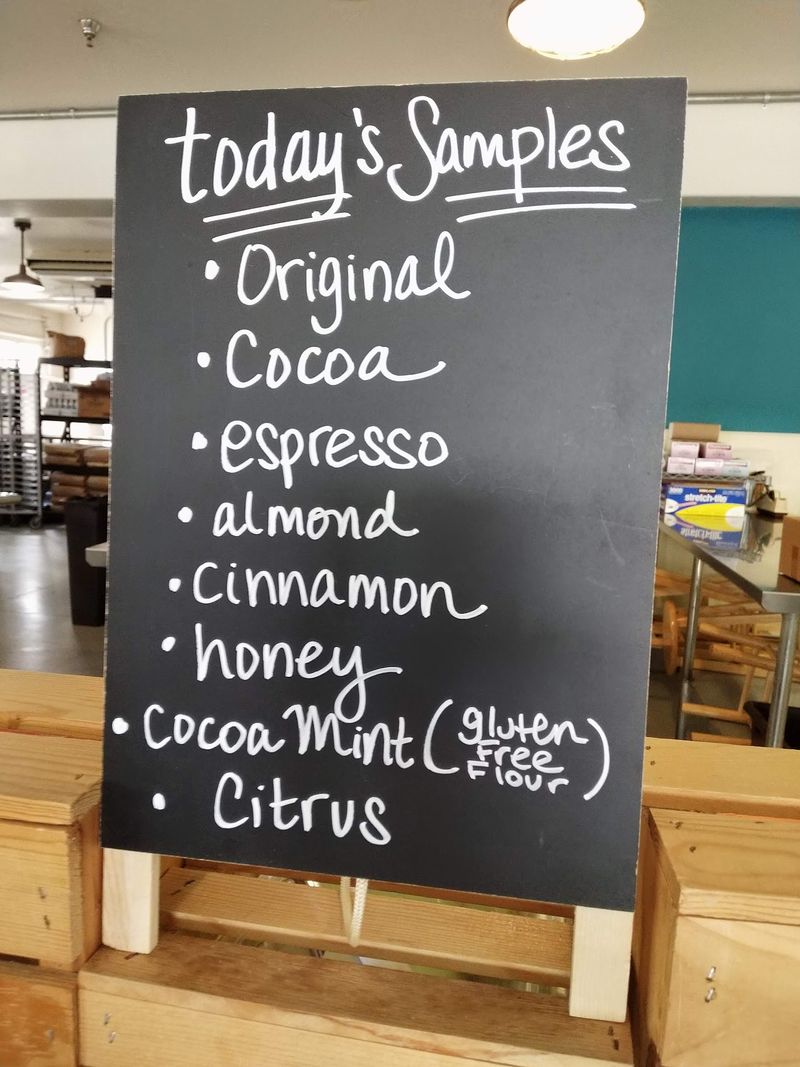 today's Samples
• Original
• Cocoa
• espresso
• almond
• cinnamon
• honey
• Cocoa Mint (gluten
Free
Flour)
• Citrus
stretch-tite